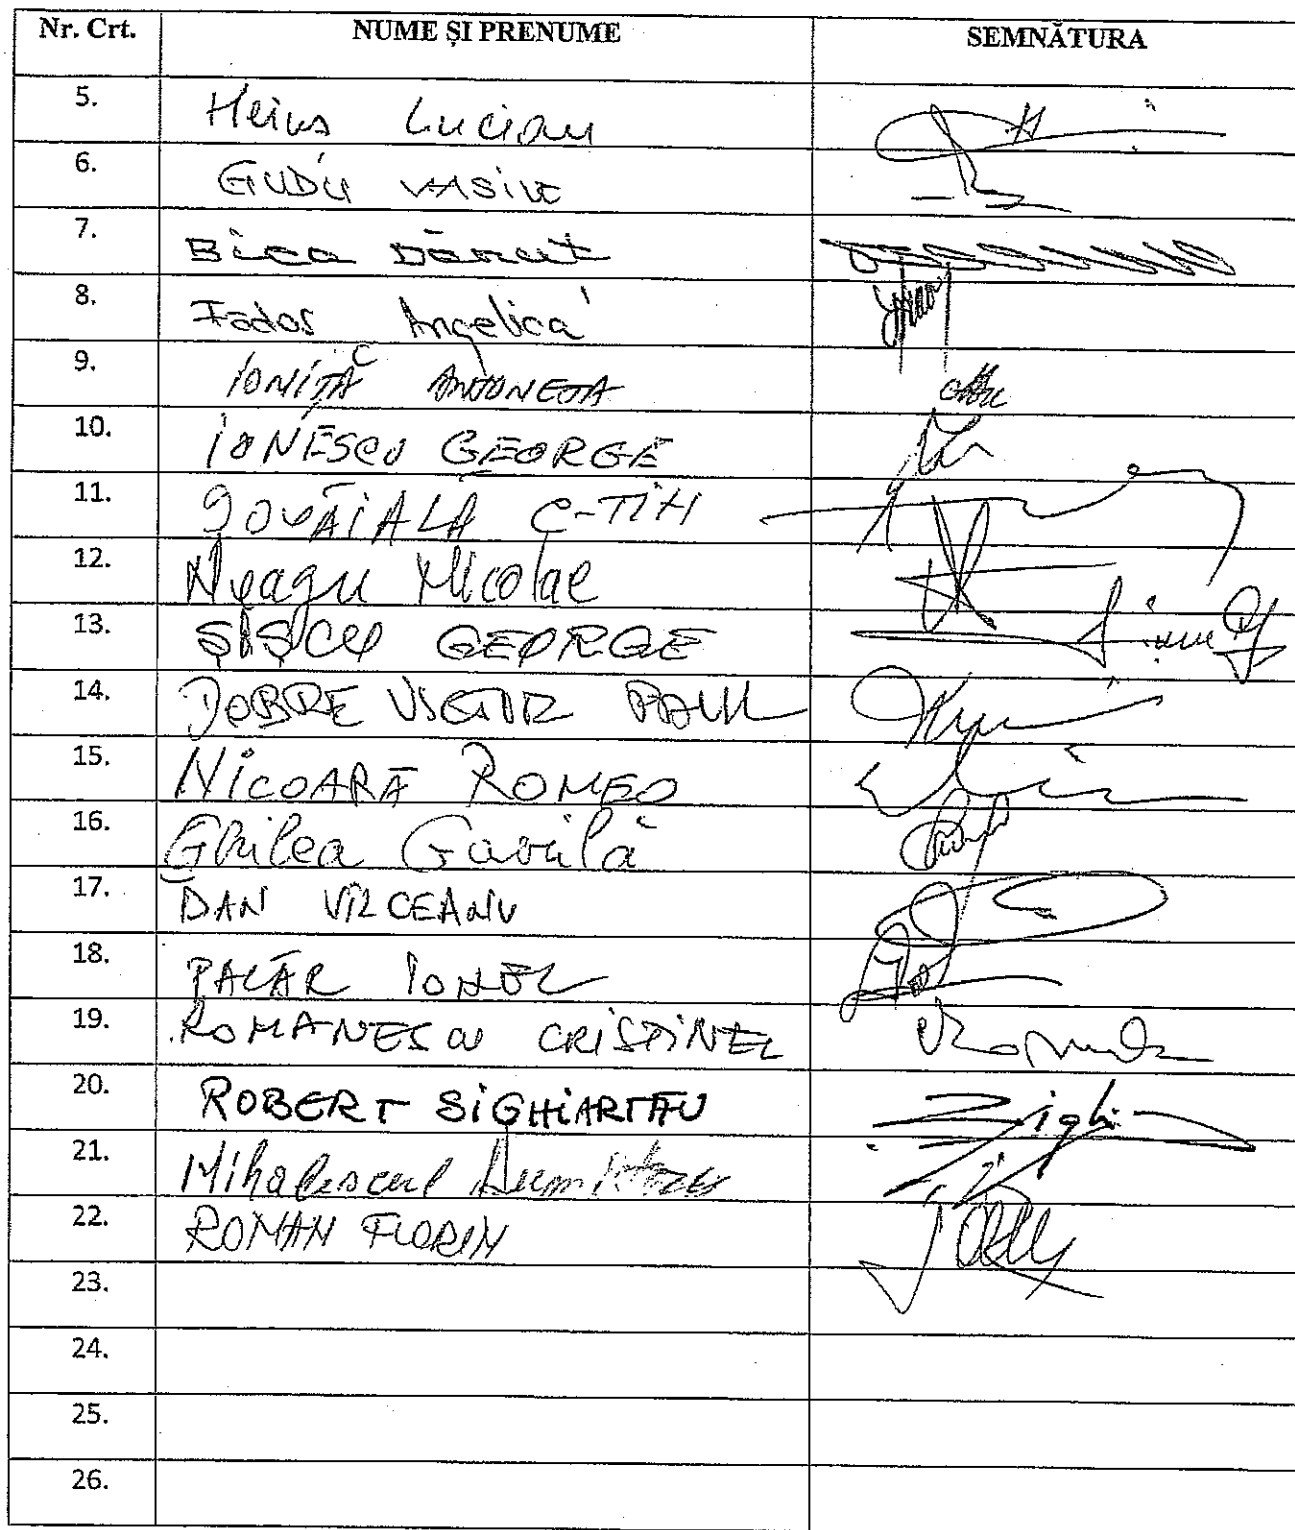 Nr. Crt. NUME ȘI PRENUME SEMNĂTURA
5. Heius Lucian
6. GUDU VASILE
7. Bica Dănuț
8. Fador Angelica
9. IONIȚĂ ANTONETA
10. IONESCU GEORGE
11. ȘOVĂIALĂ C-TIN
12. Neagu Nicolae
13. ȘIȘCU GEORGE
14. DOBRE VICTOR PAUL
15. NICOARĂ ROMEO
16. Ghilea Găvrilă
17. DAN VÎLCEANU
18. PALĂR IONEL
19. ROMANESCU CRISTINEL
20. ROBERT SIGHIARTĂU
21. Mihalescul Dumitru
22. ROMAN FLORIN
23.
24.
25.
26.